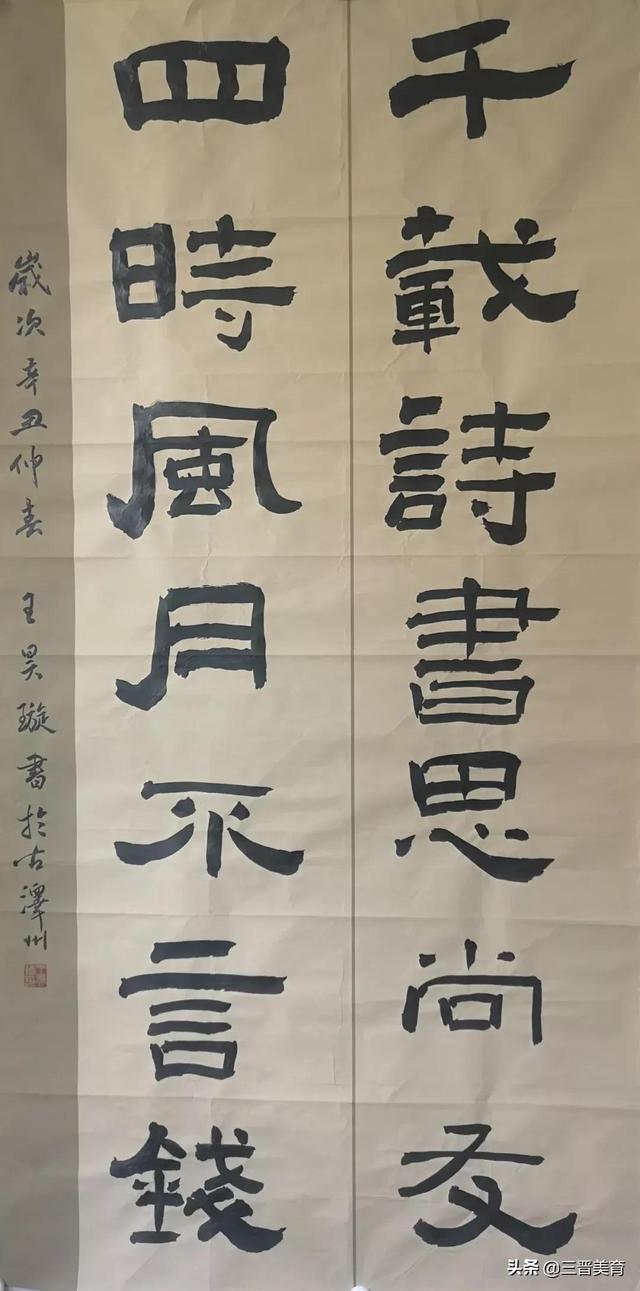 千載詩書思尚友
四時風月不言錢
歲次辛丑仲春 王昊璇書於古澤州
头条 @三晋美育